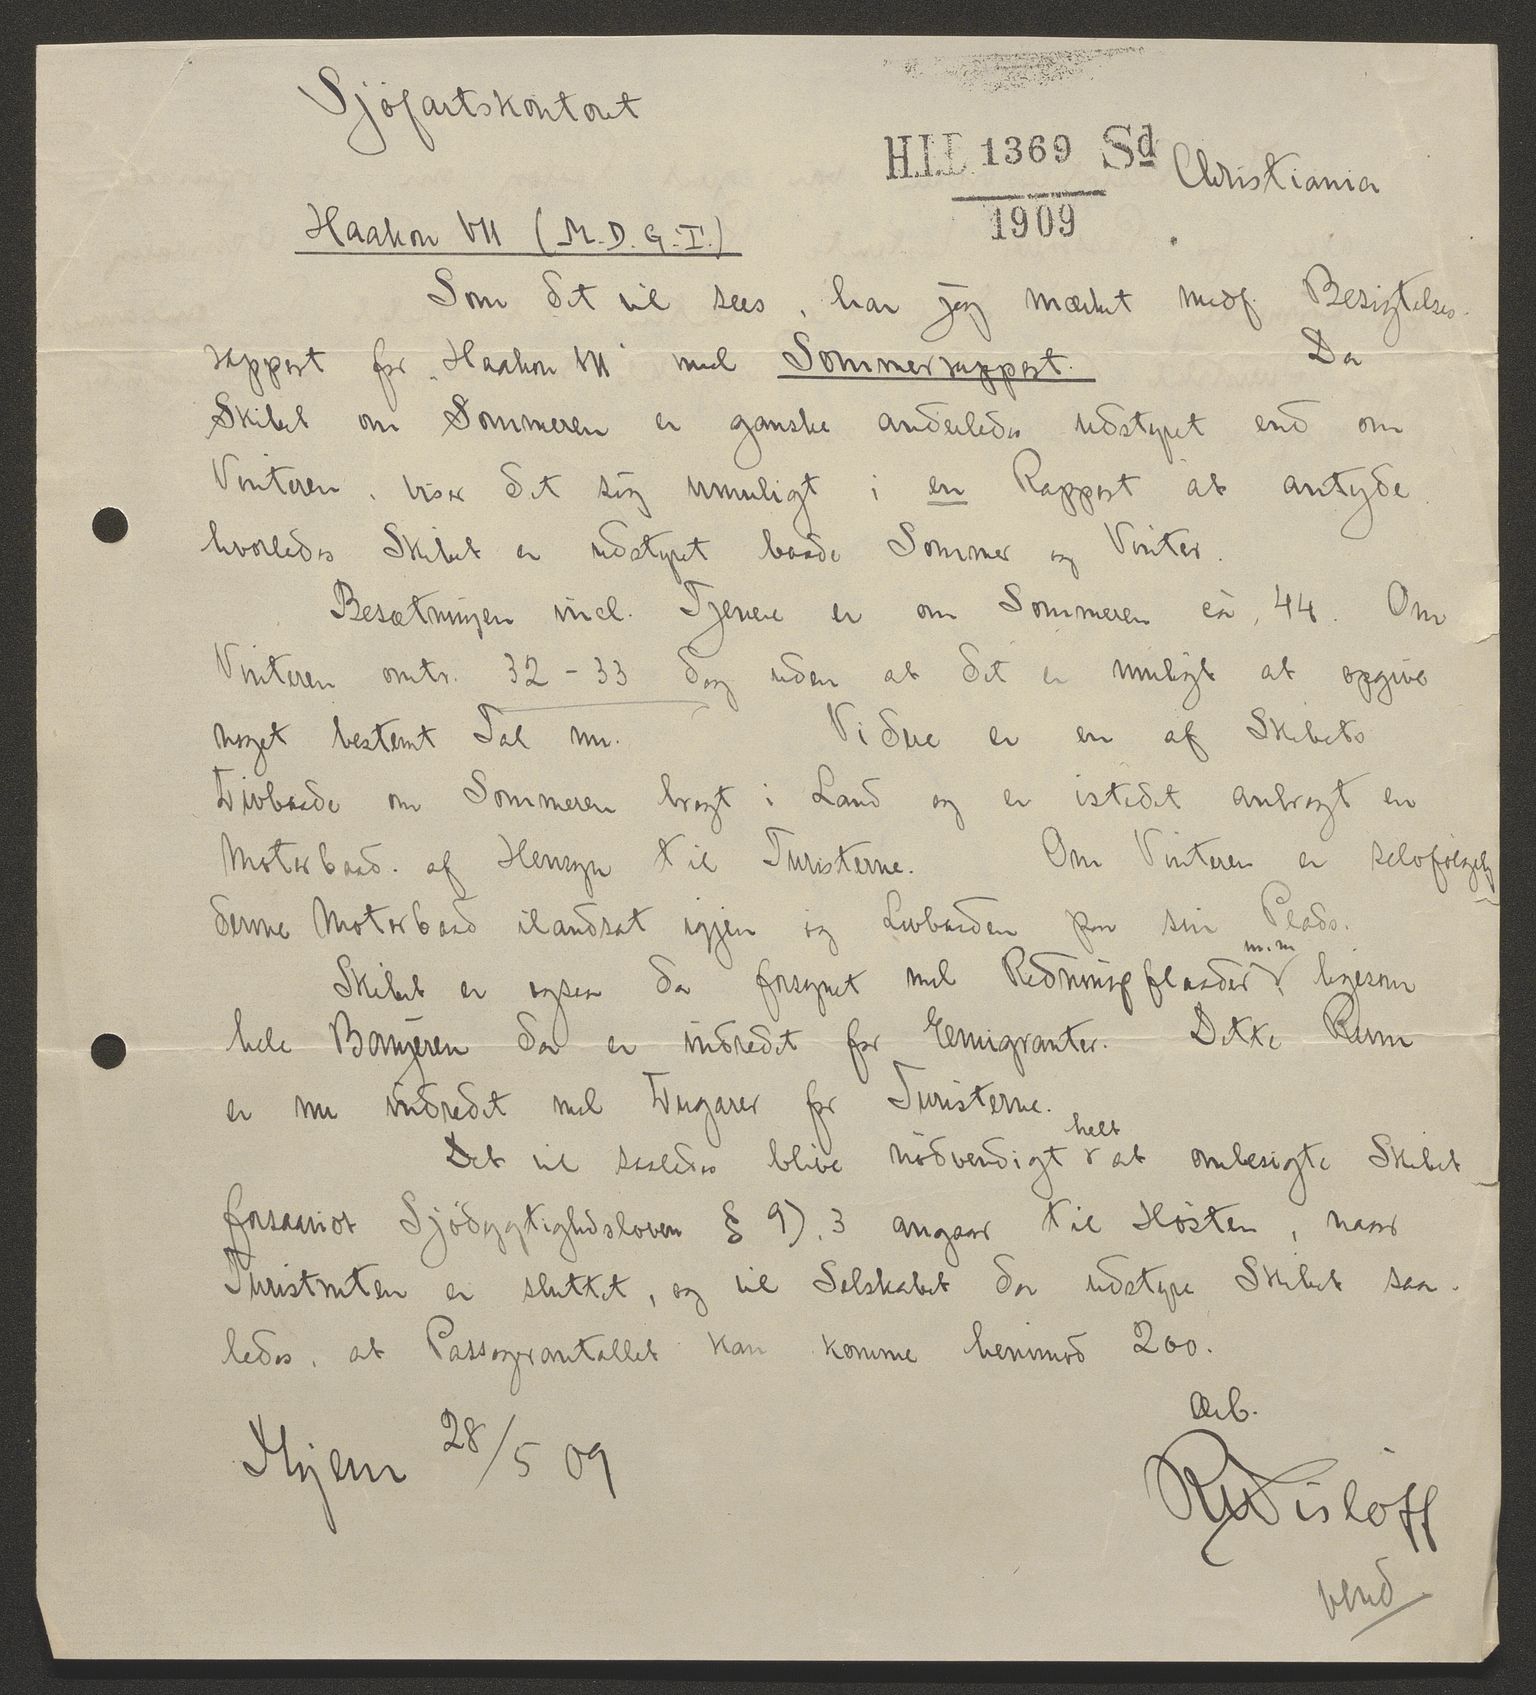 Sjøfartskontoret
H.I.D. 1369 Sd
1909
Christiania
Haakon VII (M.D.G.T.)
Som det vil sees, har jeg mærket medf. Besigtelses-
rapport for "Haakon VII" med Sommerrapport. Da
Skibet om Sommeren er ganske anderledes udstyret end om
Vinteren, viser det sig umuligt i en Rapport at antyde
hvorledes Skibet er udstyret baade Sommer og Vinter.
Besætningen incl. Tjenere er om Sommeren ca. 44. Om
Vinteren omtr. 32-33 dog uden at det er muligt at opgive
noget bestemt Tal nu. Videre er en af Skibets
Livbaade om Sommeren bragt i Land og er istedet anbragt en
Motorbaad af Hensyn til Turisterne. Om Vinteren er selvfølgelig
denne Motorbaad ilandsat igjen og Livbaaden paa sin Plads.
Skibet er ogsaa da forsynet med Redningsflaader m.m., ligesom
hele Banjeren da er indredet for Emigranter. Dette Rum
er nu indredet med Lugarer for Turisterne.
Det vil saaledes blive nødvendigt helt at ombesigte Skibet
forsaavidt Sjødygtighedsloven § 9), 3 angaar til Høsten, naar
Turistruten er sluttet, og vil Selskabet da udstyre Skibet saa-
ledes, at Passagerantallet kan komme henimod 200.
Ærb.
28/5 09
Wisløff
vend